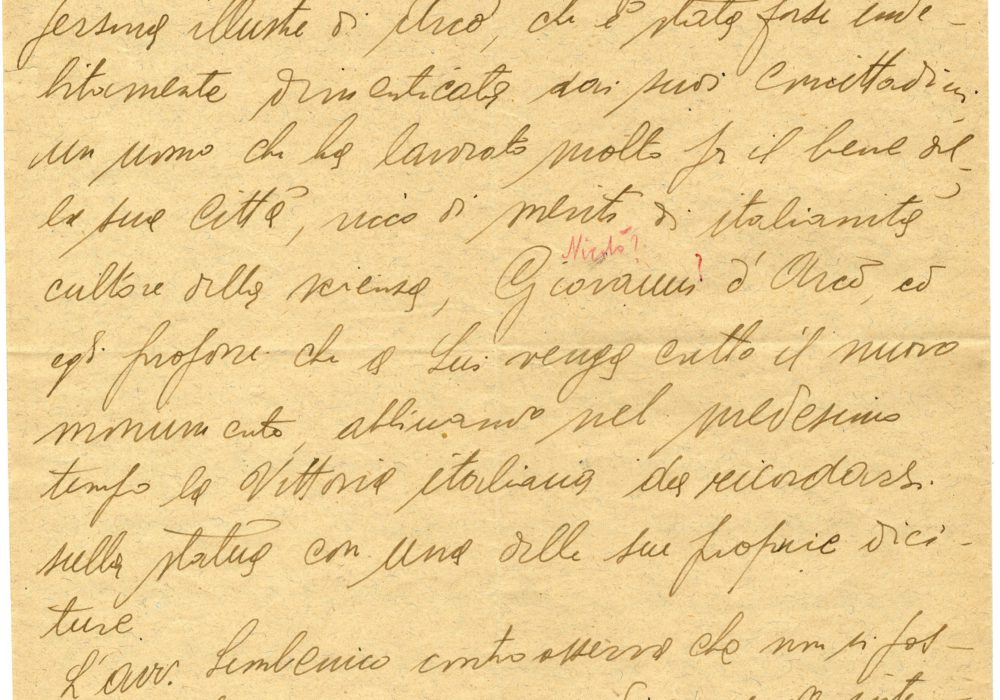 persona illustre di Arco, che è stata forse inde-
bitamente dimenticata dai suoi concittadini
un uomo che ha lavorato molto per il bene del-
la sua città, ricco di meriti di italianità
Nicolò?
cultore della scienza, Giovanni? d'Arco, ed
egli propone che a Lui venga eretto il nuovo
monumento, abbinando nel medesimo
tempo la Vittoria italiana da ricordarsi
sulla statua con una delle sue proprie dici-
ture.
L'avv. controosserva che non si pos-